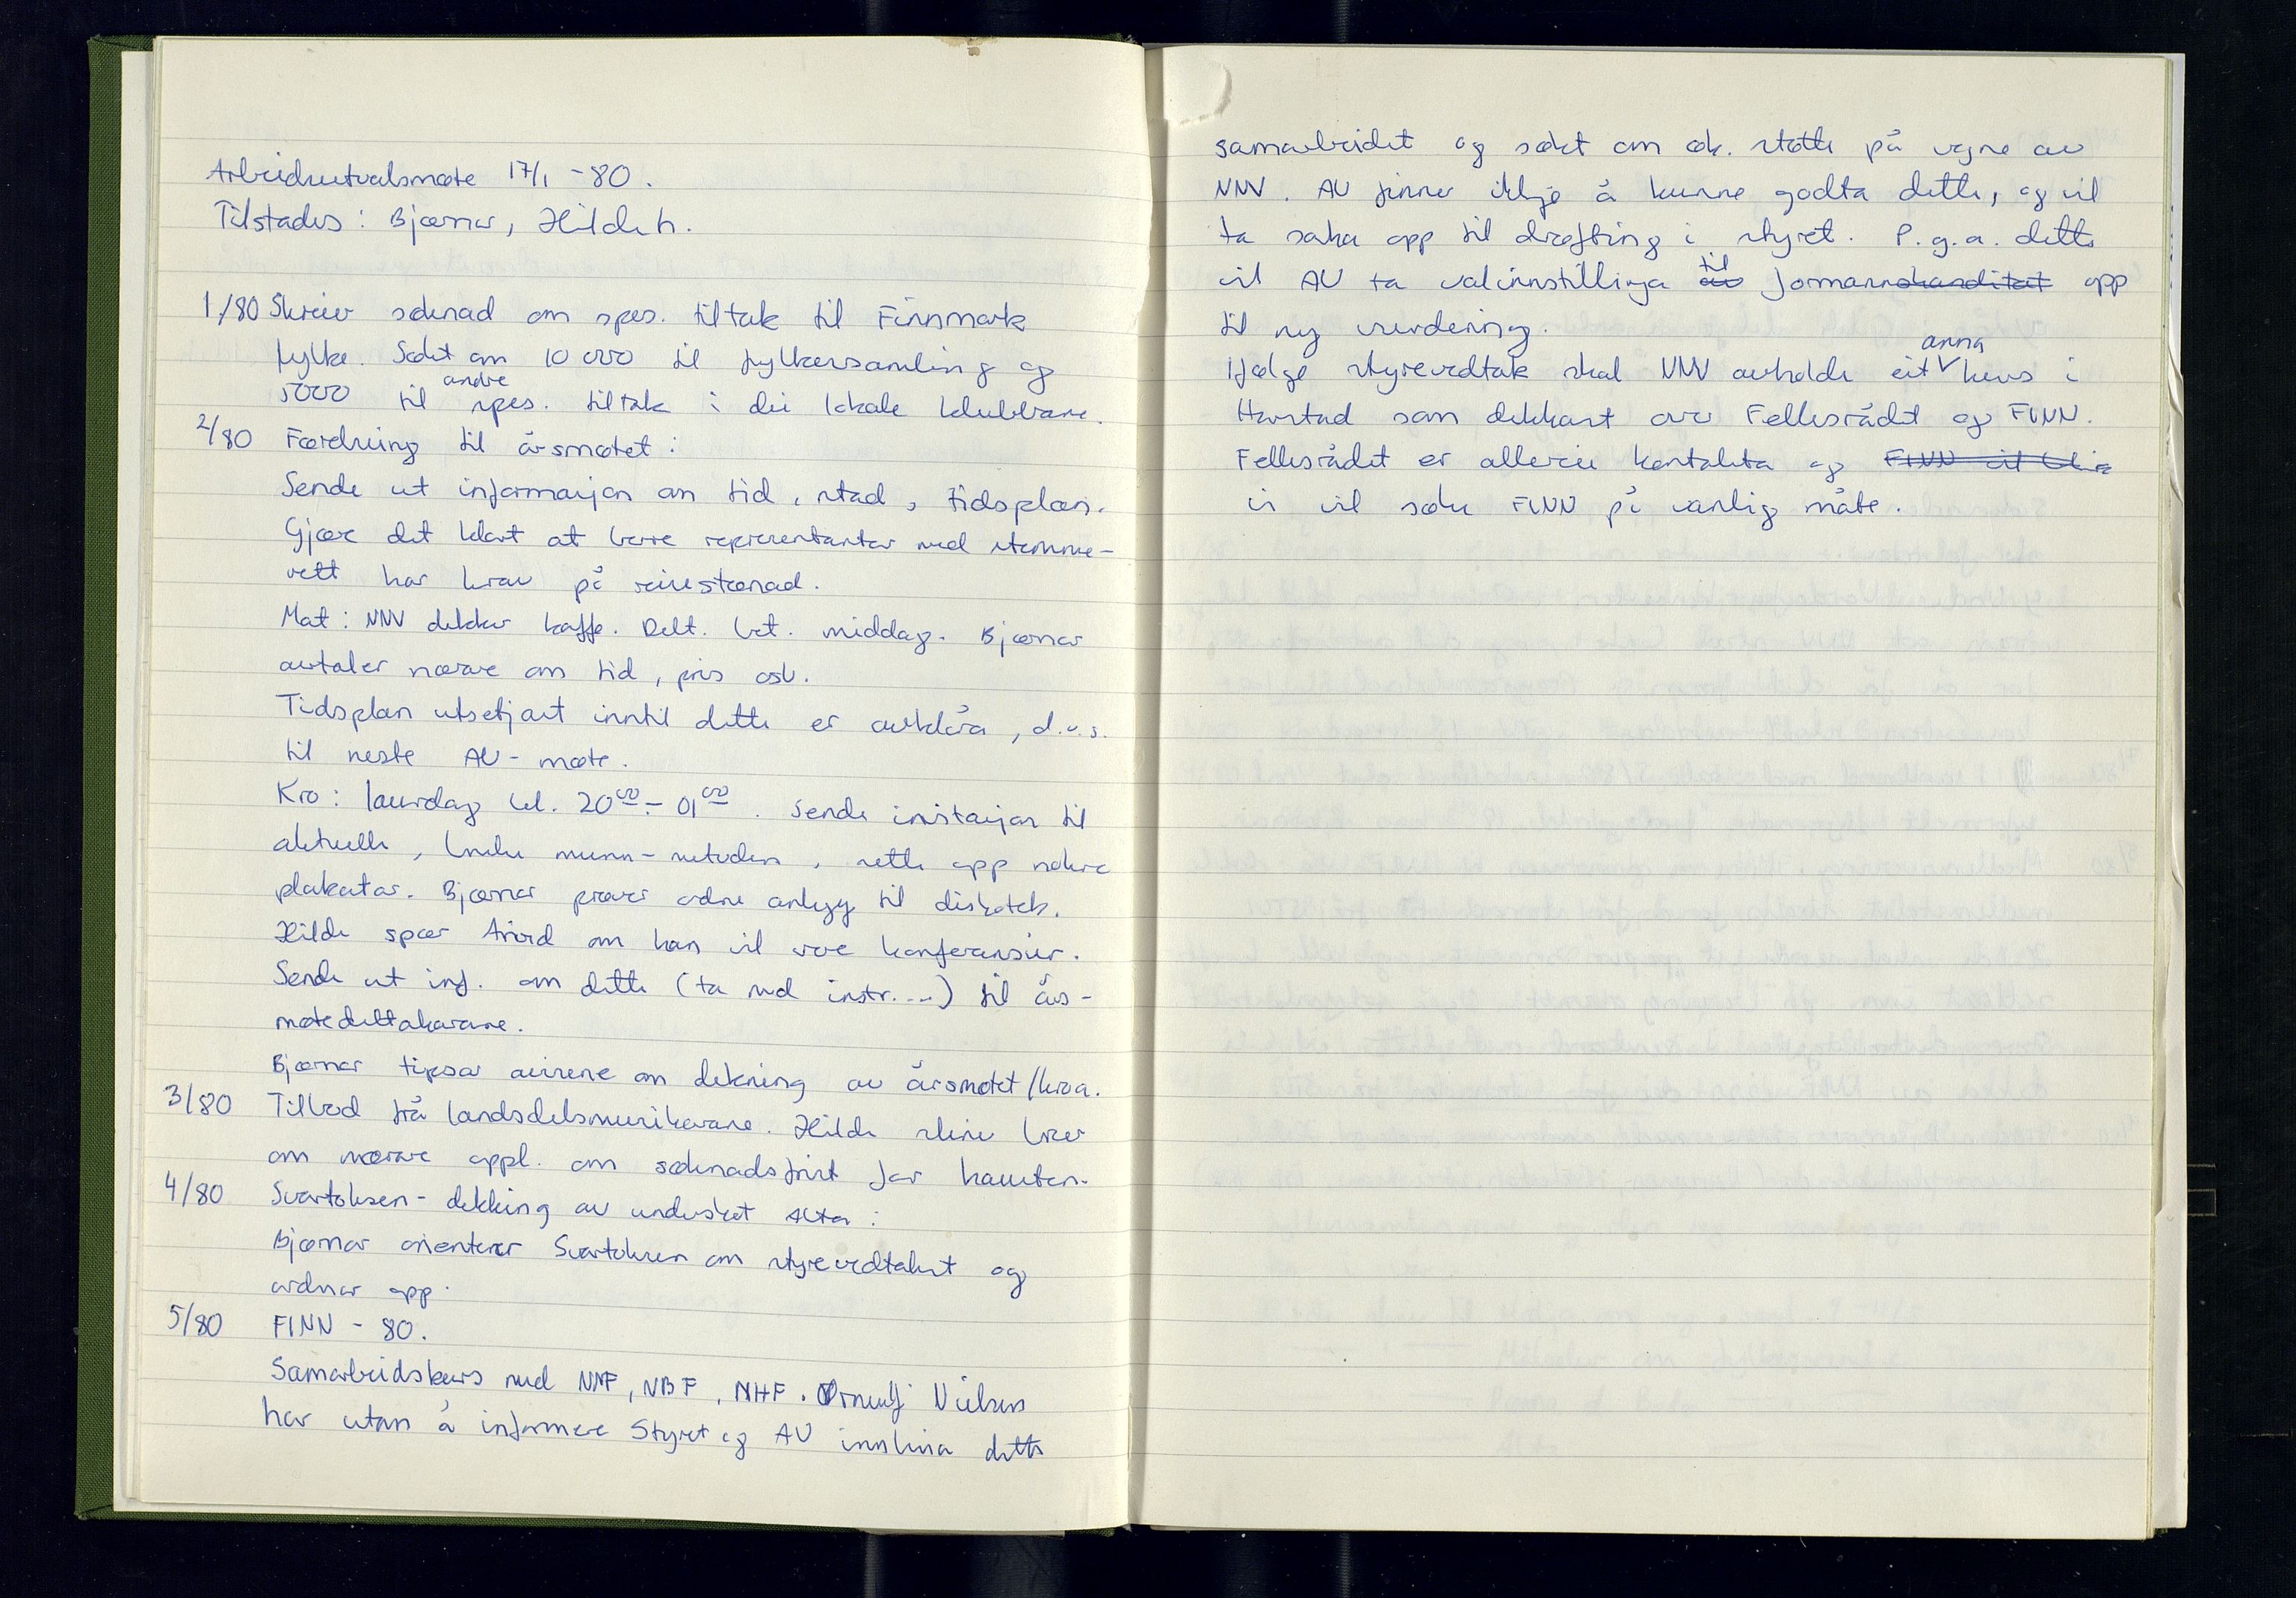 Arbeidsutvalsmøte 17/1 - 80.
Tilstades: Bjørnar, Hilde h.
1/80 Skreiv søknad om spes. tiltak til Finnmark
fylke. Søkt om 10 000 til fylkessamling og
5000 til andre spes. tiltak i dei lokale klubbane.
2/80 Førebuing til årsmøtet:
Sende ut informasjon om tid, stad, tidsplan.
Gjøre det klart at berre representantar med stemme-
rett har krav på reisestønad.
Mat: NNV dekker kaffe. Delt. bet. middag. Bjørnar
avtaler nærare om tid, pris osv.
Tidsplan utsetjast inntil dette er avklåra, d.v.s.
til neste AU-møte.
Kro: laurdag kl. 20 00 - 01 00. Sende invitasjon til
aktuelle, bruke munn-metoden, sette opp nokre
plakatar. Bjørnar prøver ordne anlegg til diskotek.
Hilde spør Arvid om han vil vere konferansier.
Sende ut inf. om dette (ta med instr...) til års-
møtedeltakarane.
Bjørnar tipsar avisene om dekning av årsmøtet/kroa.
3/80 Tilbod frå landsdelsmusikarane. Hilde skriv brev
om nærare oppl. om søknadsfrist for hausten.
4/80 Svartoksen - dekking av underskot Alta:
Bjørnar orienterer Svartoksen om styrevedtaket og
ordnar opp.
5/80 FINN - 80.
Samarbeidskurs med NMF, NBF, NHF. Ørnulf Nielsen
har utan å informere Styret og AU innleia dette
samarbeidet og søkt om øk. støtte på vegne av
NNV. AU finner ikkje å kunne godta dette, og vil
ta saka opp til drøfting i styret. P.g.a. dette
vil AU ta valinnstillinga av til formannskanditat opp
til ny vurdering.
Ifølge styrevedtak skal NNV avholde eit anna kurs i
Harstad som dekkast over Fellesrådet og FINN.
Fellesrådet er allereie kontakta og FINN vil bli
vi vil søke FINN på vanlig måte.